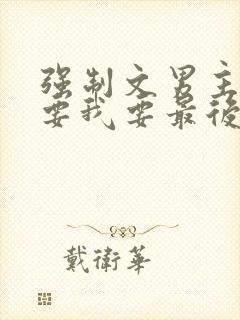 强制文男主
要我要最後
戴衛華